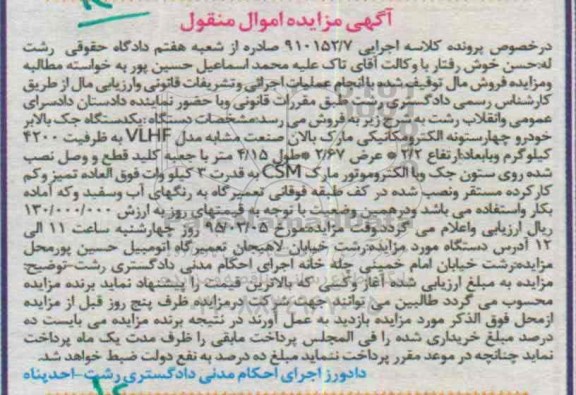 آگهی مزایده اموال منقول
درخصوص پرونده کلاسه اجرایی ۹۱۰۱۵۲/۷ صادره از شعبه هفتم دادگاه حقوقی رشت
له:حسن خوش رفتار با وکالت آقای تاک علیه محمد اسماعیل حسین پور به خواسته مطالبه
ومزایده فروش مال توقیف شده باانجام عملیات اجرائی وتشریفات قانونی وارزیابی مال از طریق
کارشناس رسمی دادگستری رشت طبق مقررات قانونی وبا حضور نماینده دادستان دادسرای
عمومی وانقلاب رشت به شرح زیر به فروش می رسد:مشخصات دستگاه :یکدستگاه جک بالابر
خودرو چهارستونه الکترومکانیکی مارک بالان صنعت مشابه مدل VLHF به ظرفیت ۴۲۰۰
کیلوگرم وبابعادارتفاع ۲/۲ * عرض ۲/۶۷ *طول ۴/۱۵ متر با جعبه کلید قطع و وصل نصب
شده روی ستون جک وبا الکتروموتور مارک CSM به قدرت ۳ کیلو وات فوق العاده تمیز وکم
کارکرده مستقر ونصب شده در کف طبقه فوقانی تعمیرگاه به رنگهای آب وسفید وکه آماده
بکار واستفاده می باشد ودرهمین وضعیت با توجه به قیمتهای روز به ارزش ۱۳۰/۰۰۰/۰۰۰
ریال ارزیابی واعلام می گردد.وقت مزایده:مورخ ۹۵/۰۳/۰۵ روز چهارشنبه ساعت ۱۱ الی
۱۲ آدرس دستگاه مورد مزایده:رشت خیابان لاهیجان تعمیرگاه اتومبیل حسین پورمحل
مزایده:رشت خیابان امام خمینی جله خانه اجرای احکام مدنی دادگستری رشت-توضیح:
مزایده به مبلغ ارزیابی شده آغاز وکسی که بالاترین قیمت را پیشنهاد نماید برنده مزایده
محسوب می گردد طالبین می توانند جهت شرکت درمزایده ظرف پنج روز قبل از مزایده
ازمحل فوق الذکر مورد مزایده بازدید به عمل آورند در نتیجه برنده مزایده می بایست ده
درصد مبلغ خریداری شده را فی المجلس پرداخت مابقی را ظرف مدت یک ماه پرداخت
نماید چنانچه در موعد مقرر پرداخت ننماید مبلغ ده درصد به نفع دولت ضبط خواهد شد.
دادورز اجرای احکام مدنی دادگستری رشت-احدپناه